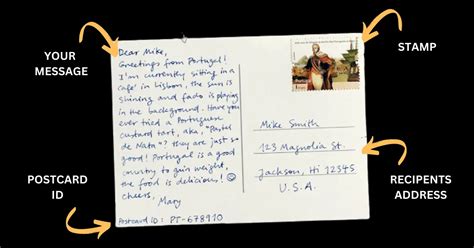 YOUR
MESSAGE
STAMP
POSTCARD
ID
RECIPENTS
ADDRESS
Dear Mike,
Greetings from Portugal!
I'm currently sitting in a
cafe' in Lisbon, the sun is
shining and fado is playing
in the background. Have you
ever tried a Portuguese
custard tart, aka, "Pastel
de Nata"? they are just so
good! Portugal is a good
country to gain weight,
the food is delicious! ☺
Cheers, Mary
Postcard ID: PT-678910
Mike Smith
123 Magnolia St.
Jackson, Hi 12345
U.S.A.